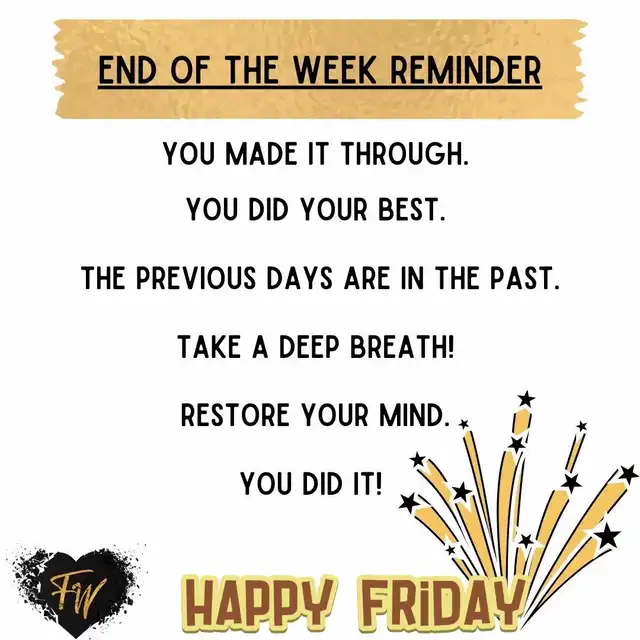 END OF THE WEEK REMINDER
YOU MADE IT THROUGH.
YOU DID YOUR BEST.
THE PREVIOUS DAYS ARE IN THE PAST.
TAKE A DEEP BREATH!
RESTORE YOUR MIND.
YOU DID IT!
FW
HAPPY FRiDAY